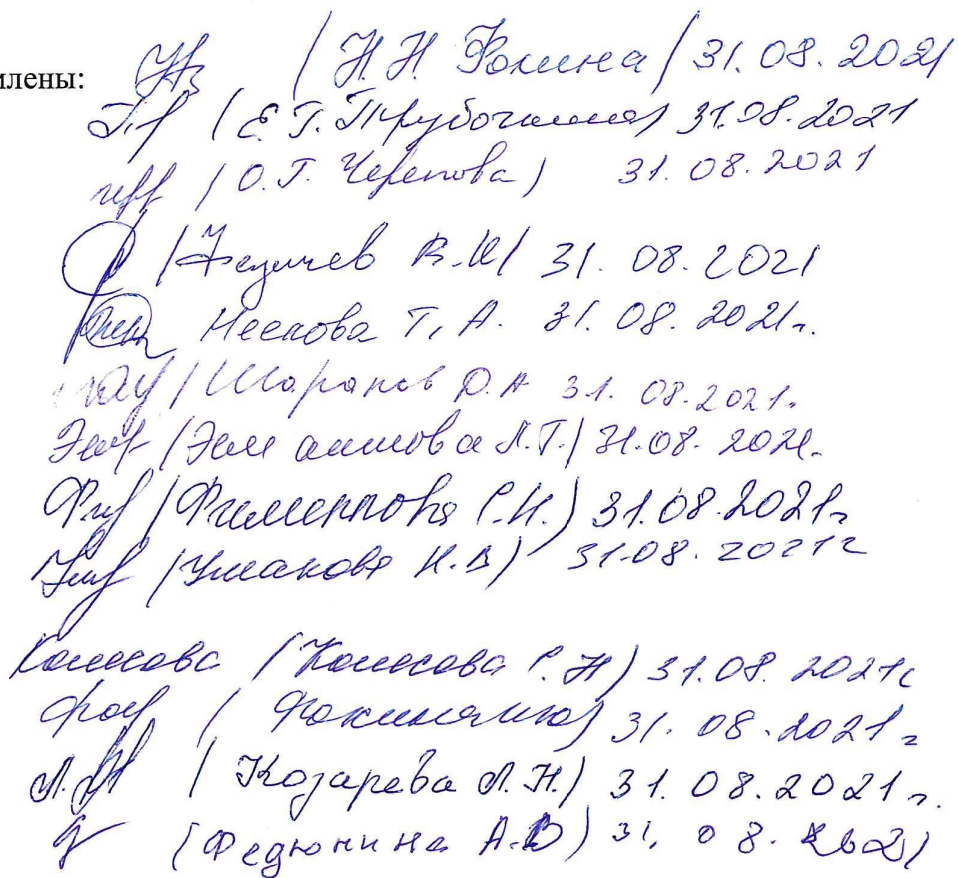 млены: / Н.Н. Фомина / 31.08.2021
/ Е.Г. Трубочкина) 31.08.2021
/ О.Г. Черепова) 31.08.2021
/ В.И / 31.08.2021
Нескова Т.А. 31.08.2021г.
/ Шарапов Д.А 31.08.2021г.
Л.Т. / 31.08.2021г.
/ Филиппова С.И.) 31.08.2021г
/ Ушакова Н.В) 31.08.2021г
Колесова (Колесова С.Н) 31.08.2021г
( 31.08.2021г
( Козарева Л.Н.) 31.08.2021г.
(Федюнина А.В) 31.08.2021